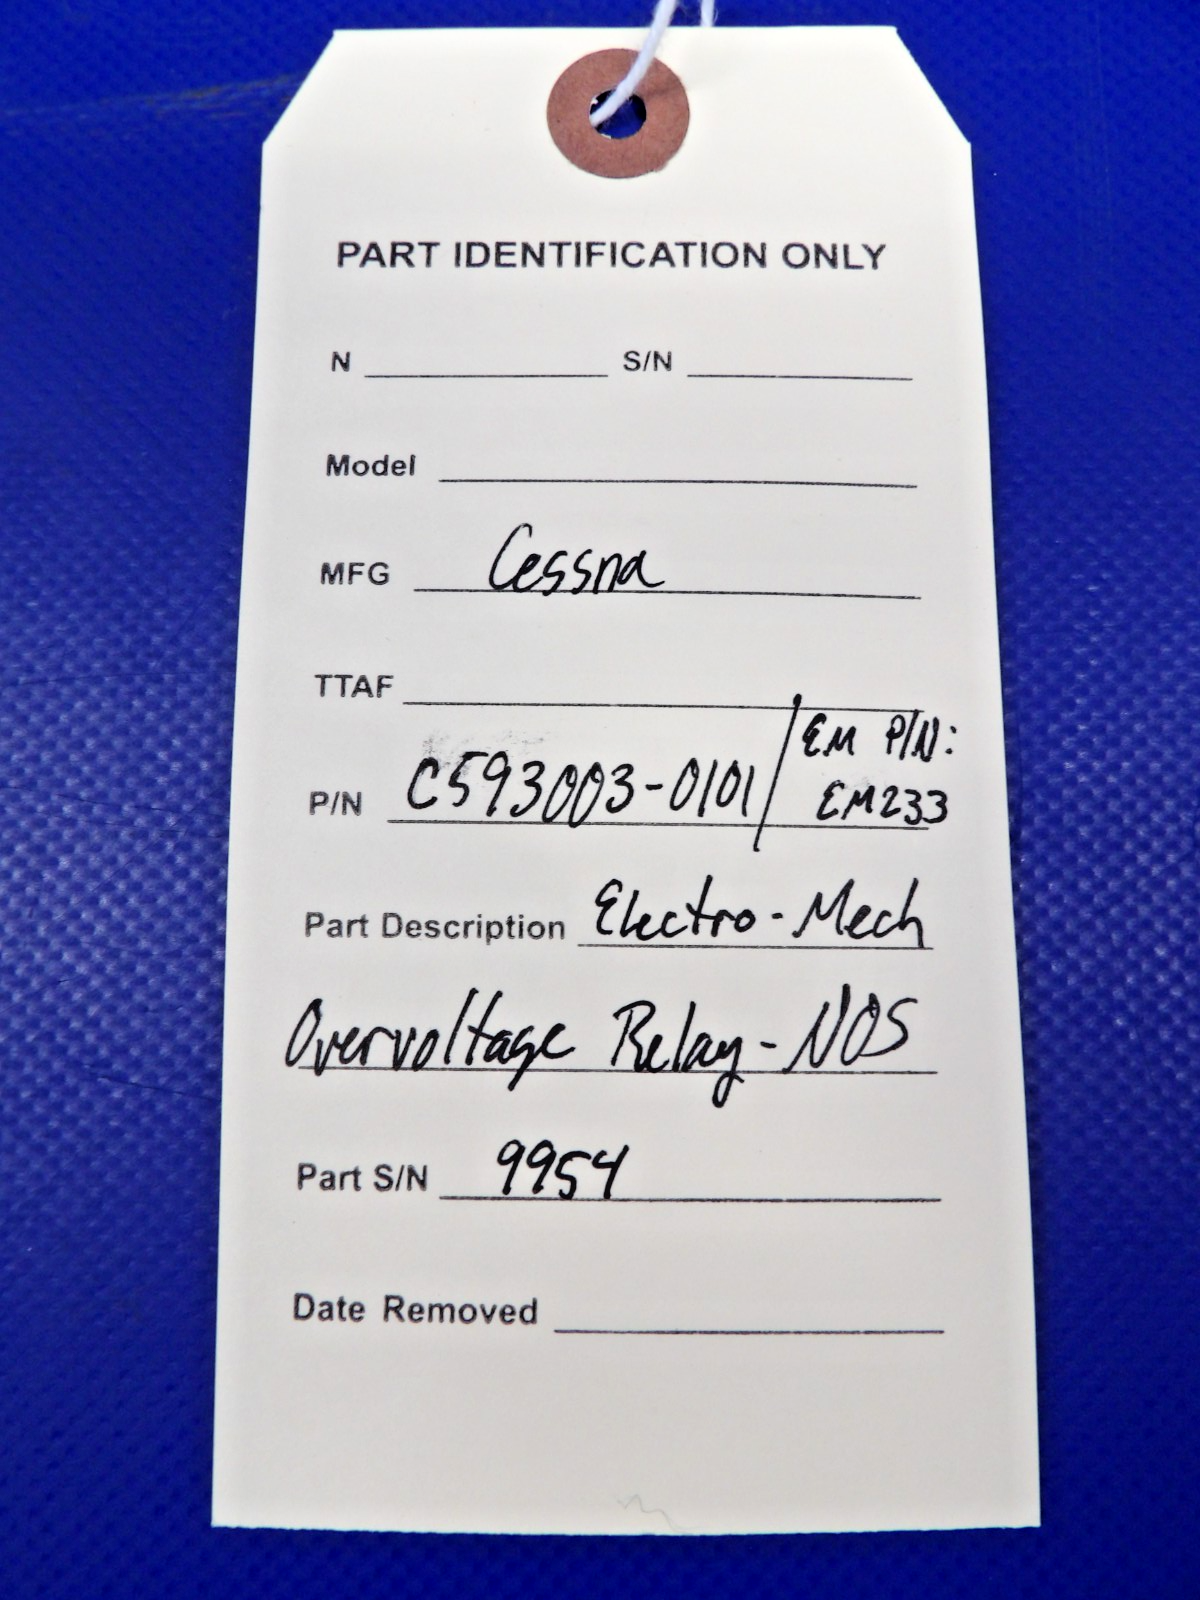 PART IDENTIFICATION ONLY
N S/N
Model
MFG Cessna
TTAF
EM P/N:
P/N C593003-0101/ EM233
Part Description Electro-Mech
Overvoltage Relay-NOS
Part S/N 9954
Date Removed